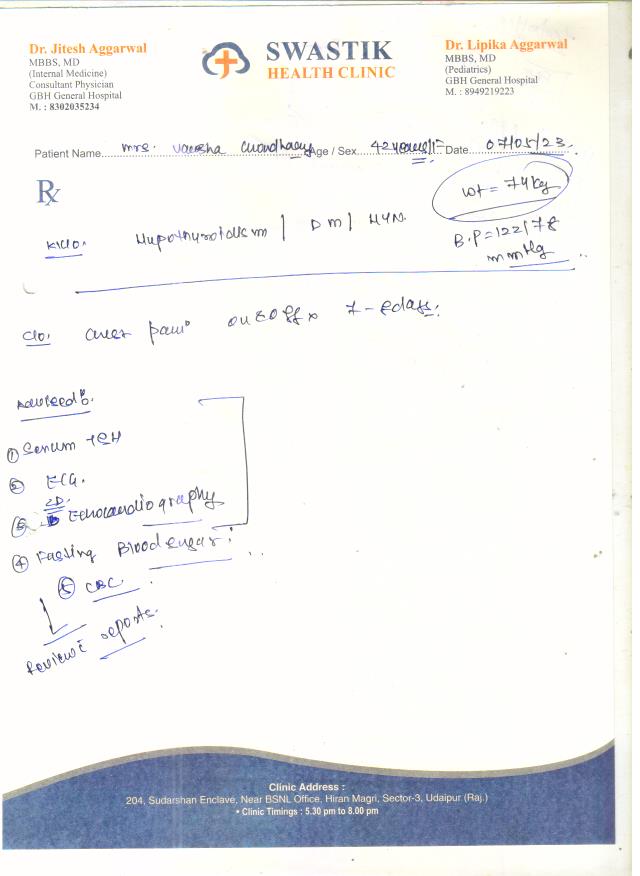 Dr. Jitesh Aggarwal
MBBS, MD
(Internal Medicine)
Consultant Physician
GBH General Hospital
M. : 8302035234
SWASTIK
HEALTH CLINIC
Dr. Lipika Aggarwal
MBBS, MD
(Pediatrics)
GBH General Hospital
M. : 8949219223
Patient Name Mrs. Varsha Choudhary Age / Sex 42 years/F Date 07/05/23.
Rx
Wt = 74 kg
B.P = 122/78
mmHg
K/c/o. Hypothyroidism | DM | HTN.
C/o. chest pain on & off x 7- days.
Advised
① Serum TSH
② ECG.
③ 2D. Echocardiography
④ Fasting Blood sugar.
⑤ CBC.
Review c̄ reports.
Clinic Address :
204, Sudarshan Enclave, Near BSNL Office, Hiran Magri, Sector-3, Udaipur (Raj.)
• Clinic Timings : 5.30 pm to 8.00 pm